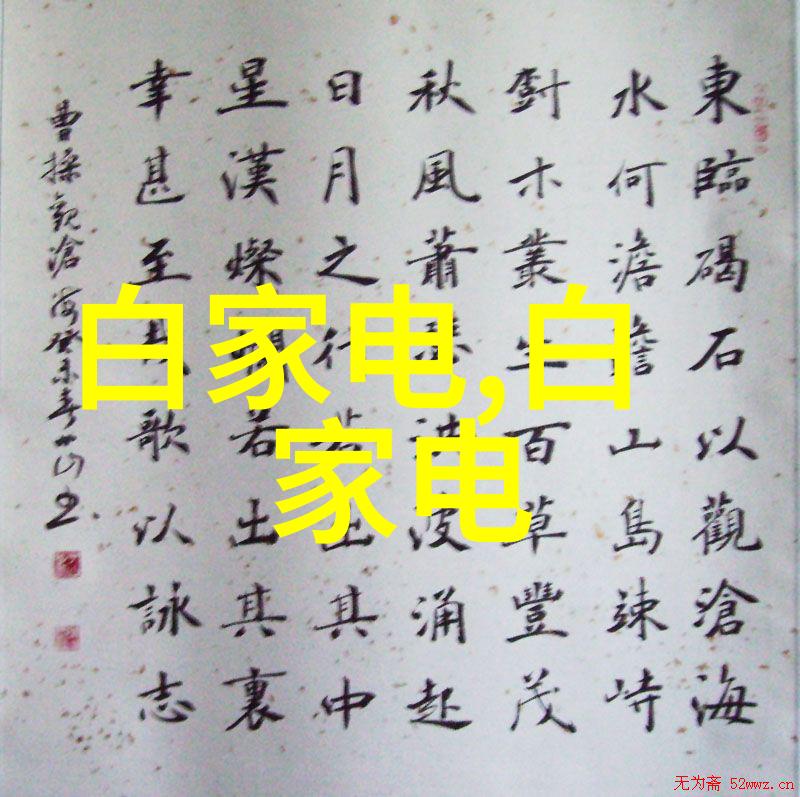 東臨碣石以觀滄海
水何澹澹山島竦峙
木叢生百草豐茂
秋風蕭瑟洪波涌起
日月之行若出其中
星漢燦爛若出其裏
幸甚至哉歌以詠志
曹操観滄海癸未春山书
白家电,白
家电
无为斋 52wwz.cn